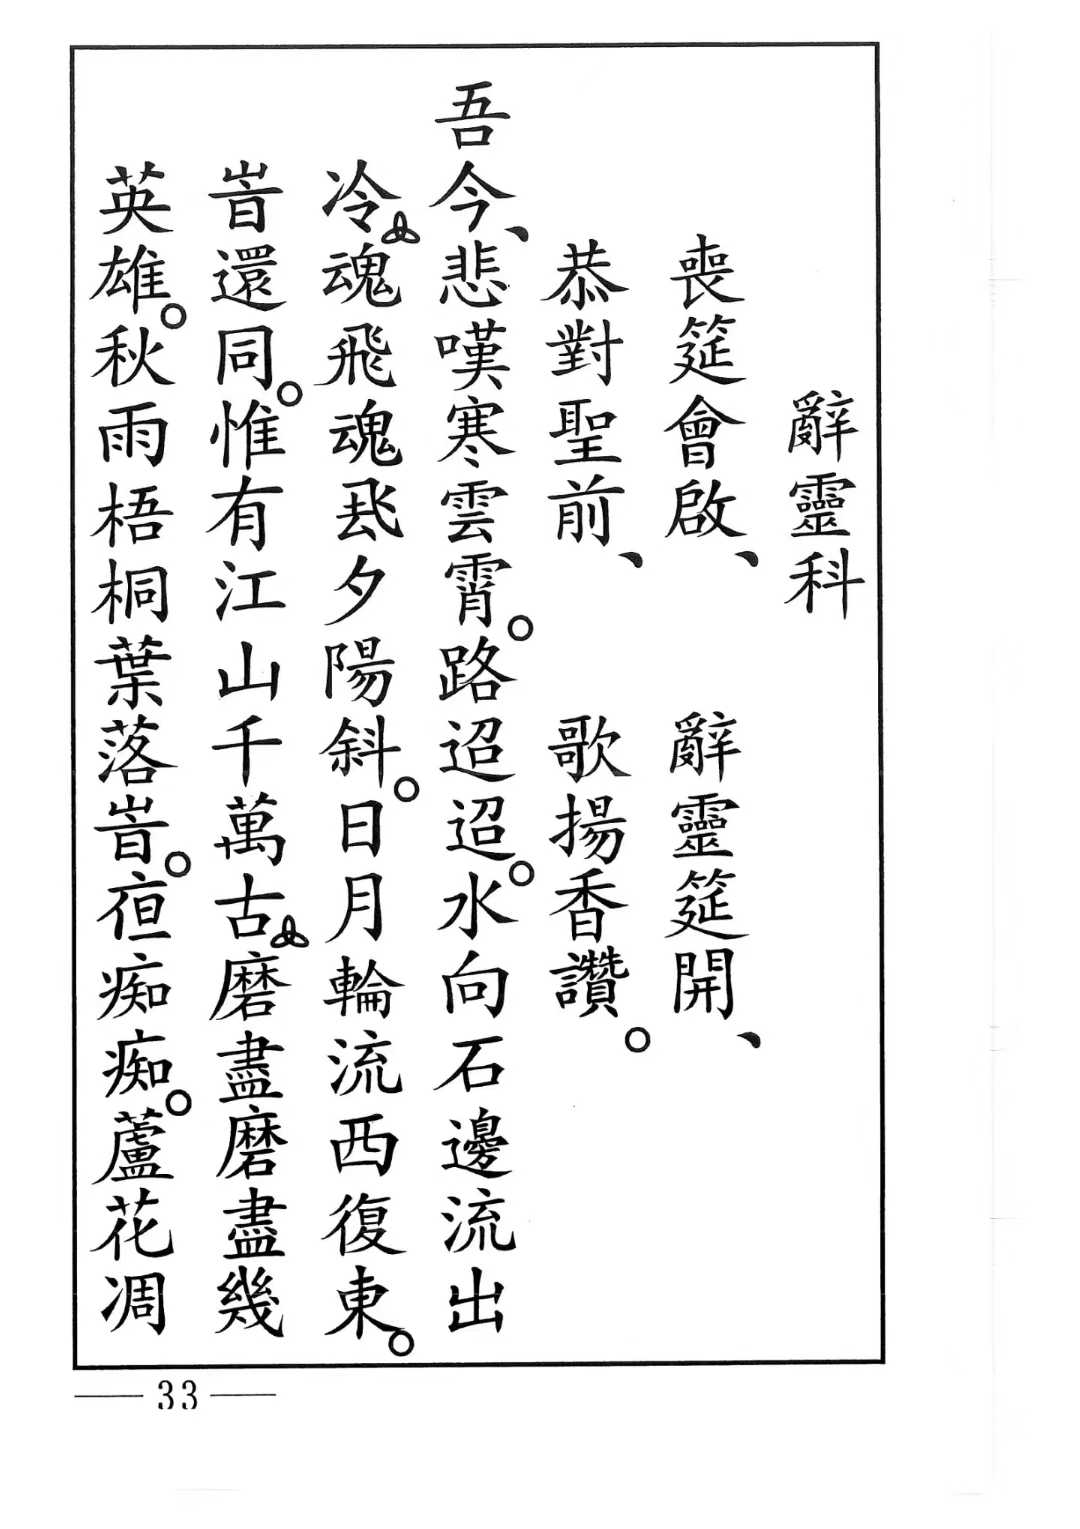 辭靈科
喪筵會啟、辭靈筵開、
恭對聖前、歌揚香讚。
吾今、悲嘆寒雲霄。路迢迢。水向石邊流出
冷魂飛魂飛夕陽斜。日月輪流西復東。
旹還同。惟有江山千萬古磨盡磨盡幾
英雄。秋雨梧桐葉落旹。痴痴。蘆花凋
33